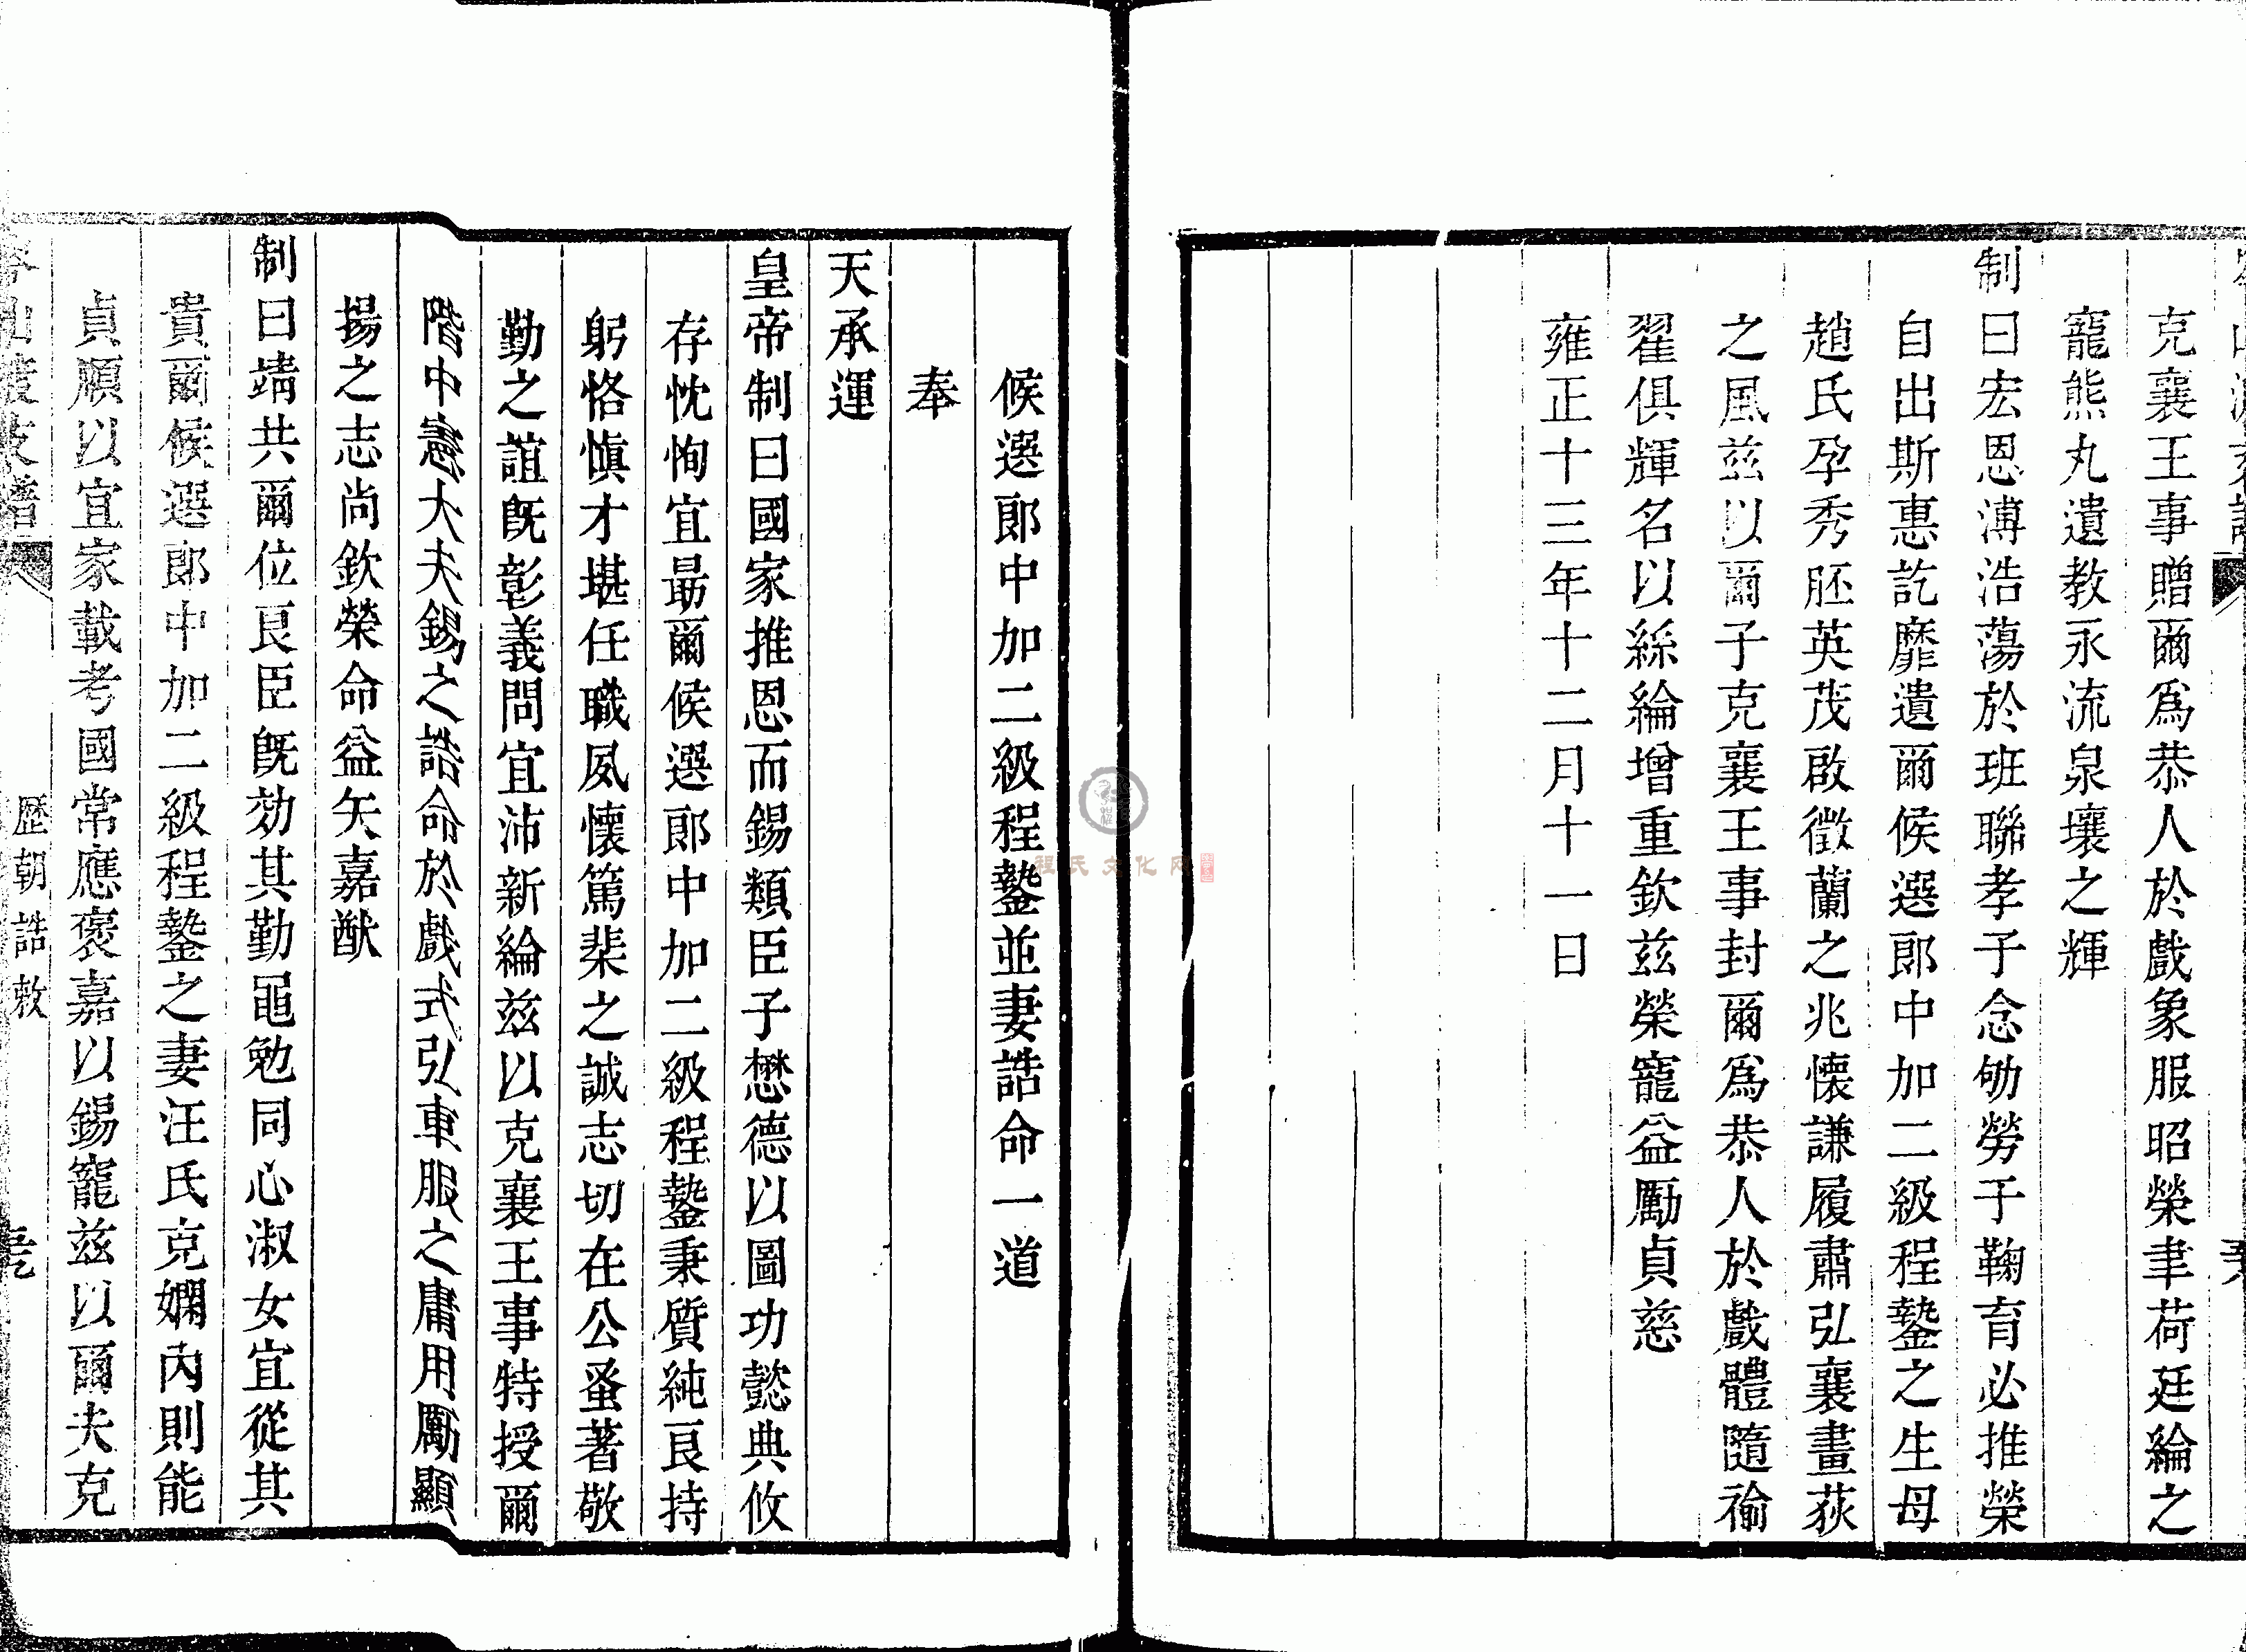 克襄王事贈爾爲恭人於戲象服昭榮聿荷廷綸之
寵熊丸遺教永流泉壤之輝
制曰宏恩溥浩蕩於班聯孝子念劬勞于鞠育必推榮
自出斯惠訖靡遺爾候選郎中加二級程鍳之生母
趙氏孕秀胚英茂啟徵蘭之兆懷謙履肅弘襄畫荻
之風茲以爾子克襄王事封爾爲恭人於戲體隨褕
翟俱輝名以絲綸增重欽茲榮寵益勵貞慈
雍正十三年十二月十一日
候選郎中加二級程鍳並妻誥命一道
奉
天承運
皇帝制曰國家推恩而錫類臣子懋德以圖功懿典攸
存忱恂宜勗爾候選郎中加二級程鍳秉質純良持
躬恪慎才堪任職夙懷篤棐之誠志切在公蚤著敬
勤之誼既彰義問宜沛新綸茲以克襄王事特授爾
階中憲大夫錫之誥命於戲式弘車服之庸用勵顯
揚之志尚欽榮命益矢嘉猷
制曰靖共爾位良臣既効其勤黽勉同心淑女宜從其
貴爾候選郎中加二級程鍳之妻汪氏克嫻內則能
貞順以宜家載考國常應褒嘉以錫寵茲以爾夫克
歷朝誥敕
程氏文化网